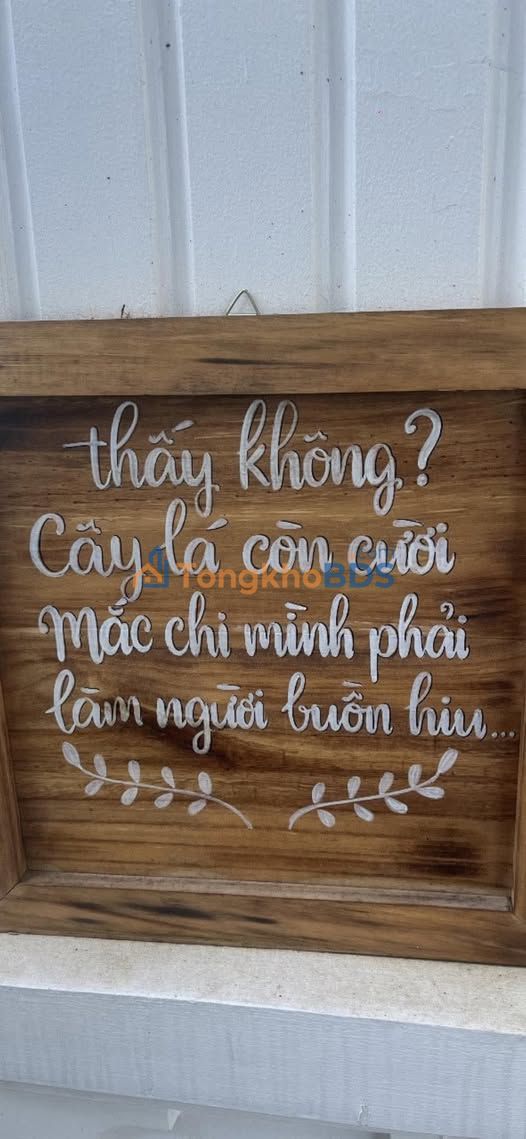 thấy không?
Cây lá còn cười
TongkhoBDS
Mắc chi mình phải
làm người buồn hiu...